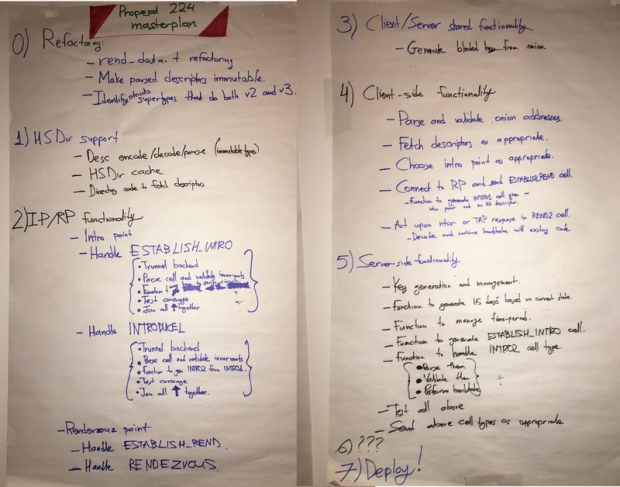 Proposal 224
masterplan
0) Refactoring:
- rend_data_t refactoring
- Make parsed descriptors immutable.
- Identify structs/supertypes that do both v2 and v3.
1) HSDir support
- Desc encode/decode/parse (immutable types)
- HSDir cache
- Directory code to fetch descriptors
2) I-P/RP functionality
- Intro point
- Handle ESTABLISH_INTRO
• Trunnel backend
• Parse cell and validate invariants
• Function
• Test coverage
• Join all ↑ together.
- Handle INTRODUCE1
• Trunnel backend
• Parse cell and validate invariants
• Function to gen INTRO2 from INTRO1.
• Test coverage
• Join all ↑ together.
- Rendezvous point
- Handle ESTABLISH_REND.
- Handle RENDEZVOUS.
3) Client/Server shared functionality
- Generate blinded keys from onion.
4) Client-side functionality
- Parse and validate .onion addresses.
- Fetch descriptors as appropriate.
- Choose intro point as appropriate.
- Connect to RP and send ESTABLISH_REND cell.
- Function to generate INTRO1 cell given
intro point and an HS descriptor.
- Act upon ntor or TAP response in REND2 cell.
- and continue handshake with existing code.
5) Server-side functionality
- Key generation and management.
- Function to generate HS desc based on current state.
- Function to manage time-period.
- Function to generate ESTABLISH_INTRO cell.
- Function to handle INTRO2 cell type
• Parse them
• Validate them
• Perform handshake
- Test all above
- Send above cell types as appropriate
6) ???
7) Deploy!